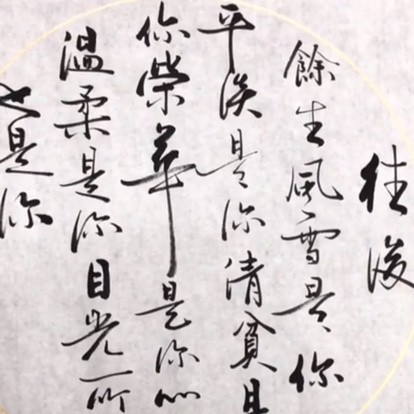 往後
餘生風雪是你
平淡是你清貧是
你榮華是你心
溫柔是你目光所
也是你